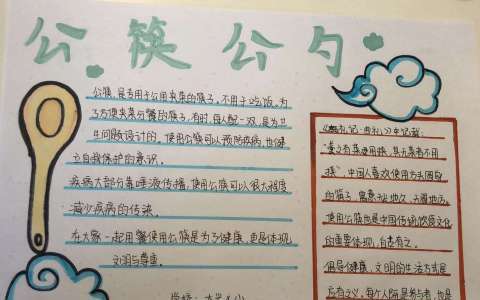 公筷公勺
公筷,是专用于公用夹菜的筷子,不用于吃饭。为
了方便夹菜分餐的筷子,有时,每人配一双,是为卫
生问题设计的,使用公筷可以预防疾病,也健
立自我保护的意识。
疾病大部分靠唾液传播,使用公筷可以很大程度
减少疾病的传染。
在大家一起用餐使用公筷是为了健康,更是体现
文明与尊重。
《礼记·曲礼》中记载:
"羹之有菜者用梜,其无菜者不用
梜"。中国人喜欢使用方头圆足
的筷子,寓意天长地久、天圆地方。
使用公筷也是中国传统饮食文化
的重要体现,自古有之。
倡导健康、文明的生活方式是
应有之义,每个人既是参与者,也是